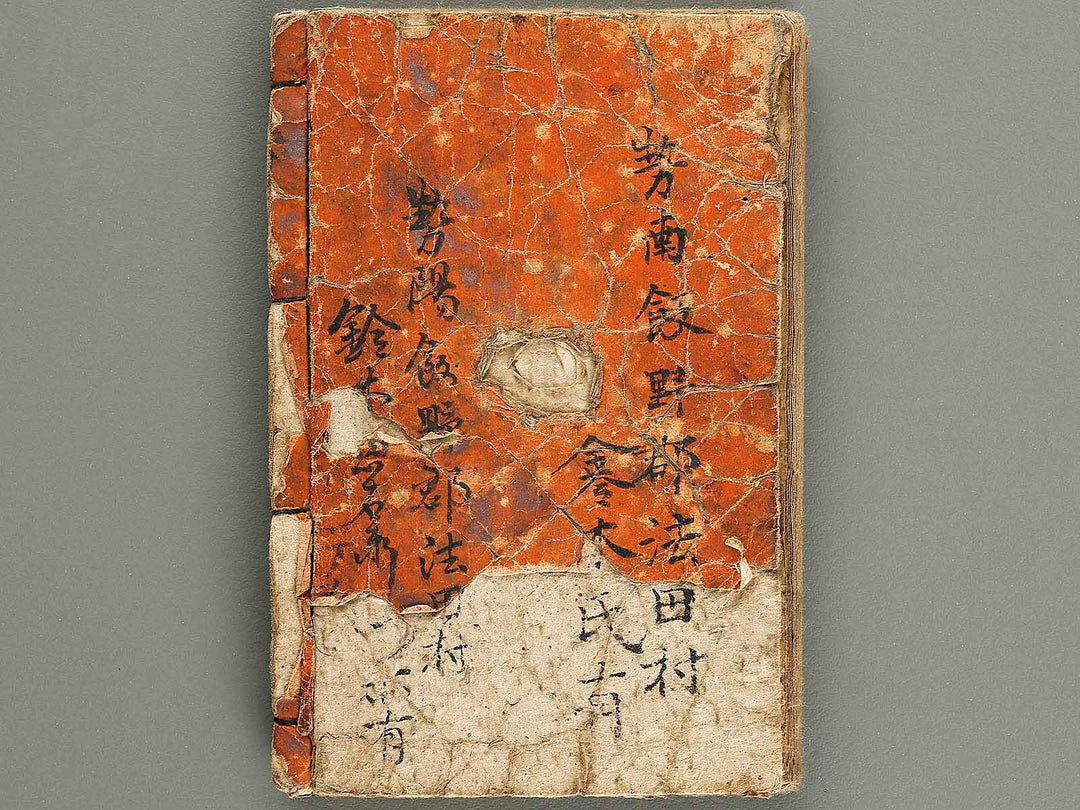 勢南飯野郡法田村
鈴木氏有
勢陽飯野郡法田村
鈴木 有